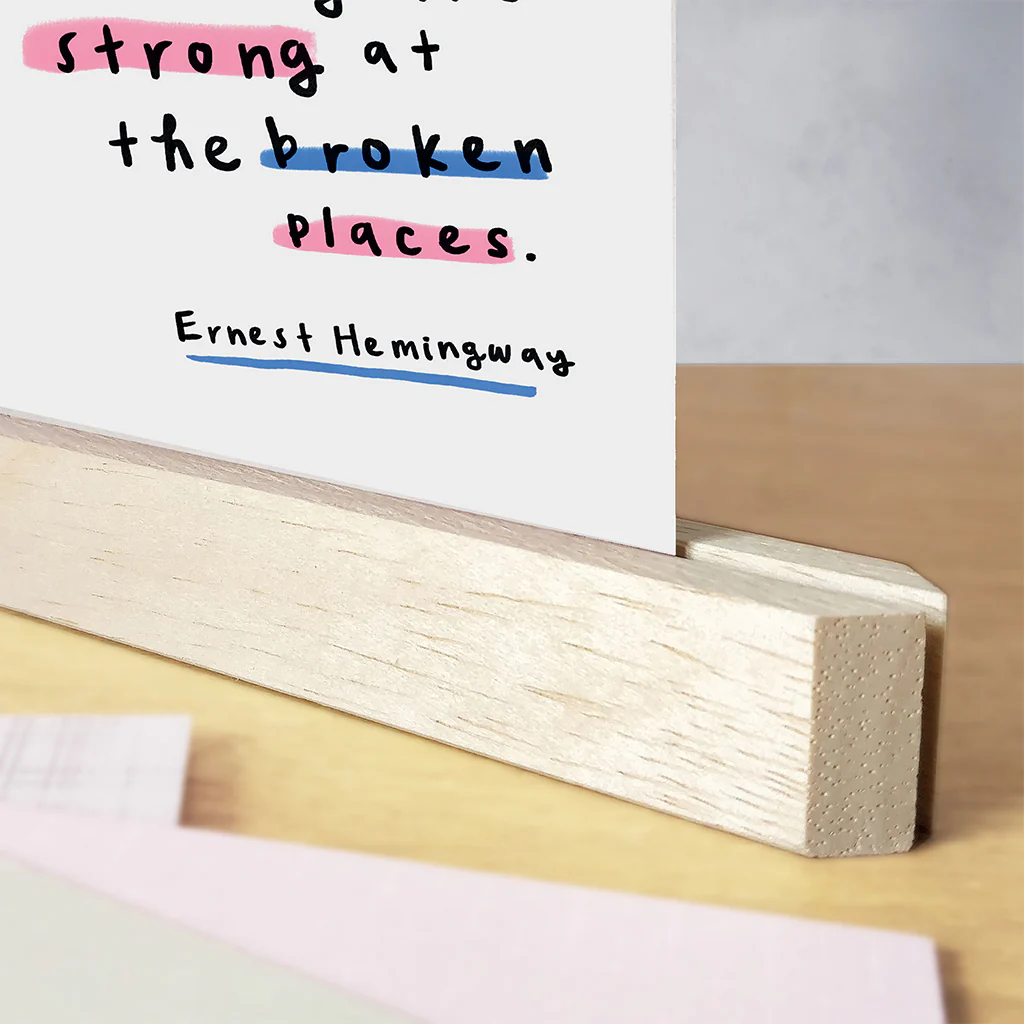 strong at
the broken
places.
Ernest Hemingway